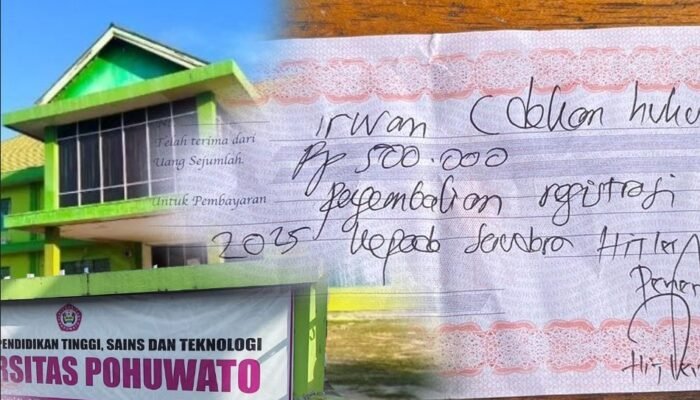 Telah terima dari Irwan (dekan huku
Uang Sejumlah Rp 500.000
Untuk Pembayaran pengembalian registrasi
2025 kepada saudara Hitler
Pener
PENDIDIKAN TINGGI, SAINS DAN TEKNOLOGI
RSITAS POHUWATO